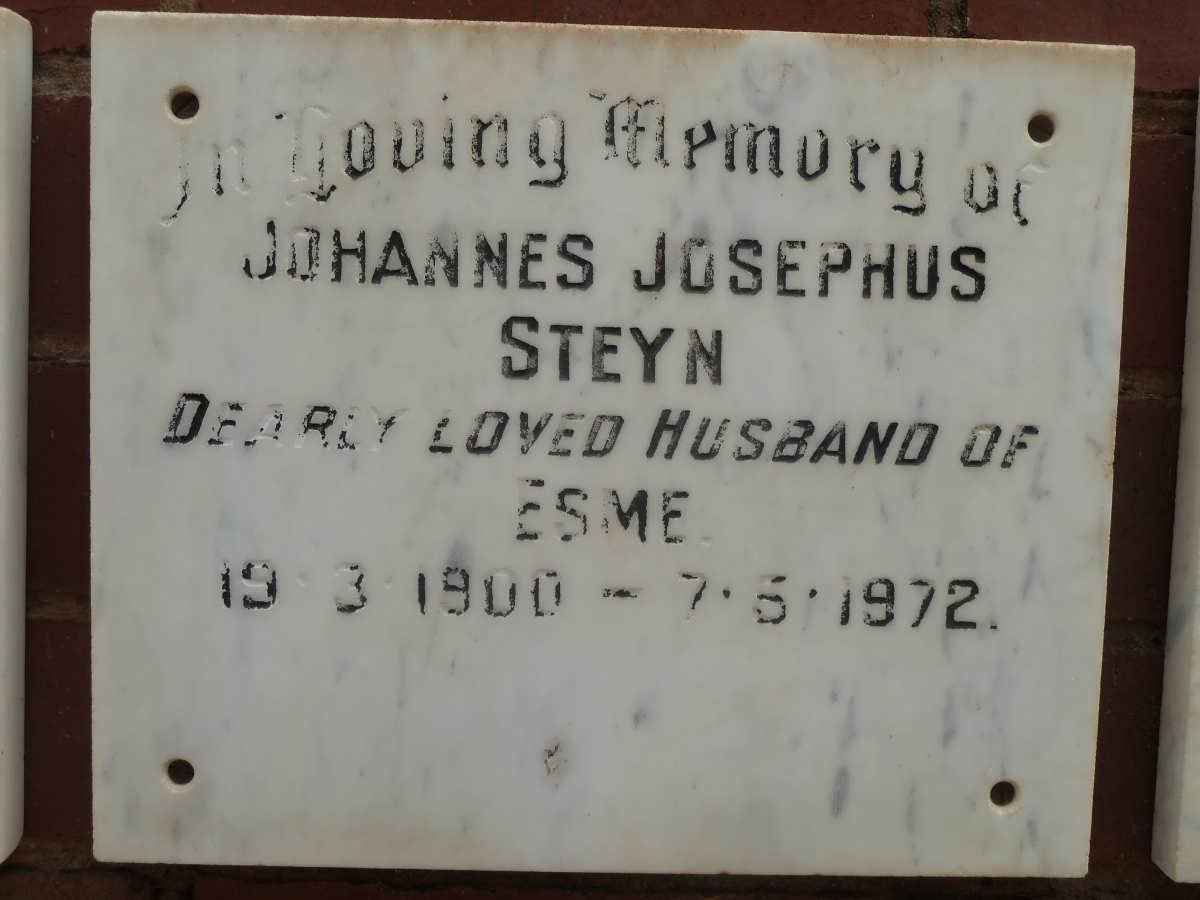 In Loving Memory of
JOHANNES JOSEPHUS
STEYN
DEARLY LOVED HUSBAND OF
ESME.
19·3·1900 – 7·5·1972.